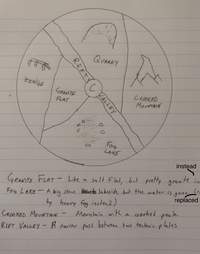 QUARRY
RIFT VALLEY
HENGE
GRANITE
FLAT
C
CROOKED
MOUNTAIN
FOG
LAKE
instead
GRANITE FLAT - Like a salt flat, but pretty granite in
FOG LAKE - A big stone lakeside, but the water is gone (
replaced
by heavy fog instead)
CROOKED MOUNTAIN - Mountain with a crooked peak.
RIFT VALLEY - A narrow pass between two tectonic plates